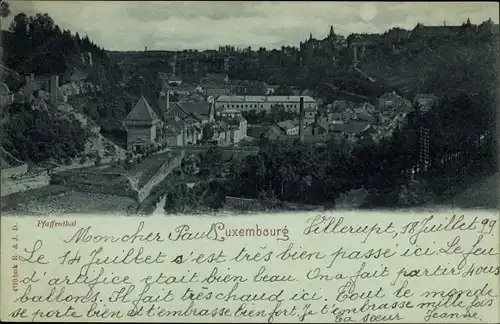 Pfaffenthal
Luxembourg
47091bck R. & J. D.
Villerupt, 18 juillet 99
Mon cher Paul
Le 14 Juillet s'est très bien passé ici. Le feu
d'artifice etait bien beau. On a fait partir 4 ous
ballons. Il fait très chaud ici. Tout le monde
se porte bien et t'embrasse bien fort. Je t'embrasse mille fois
Ta sœur Jeanne